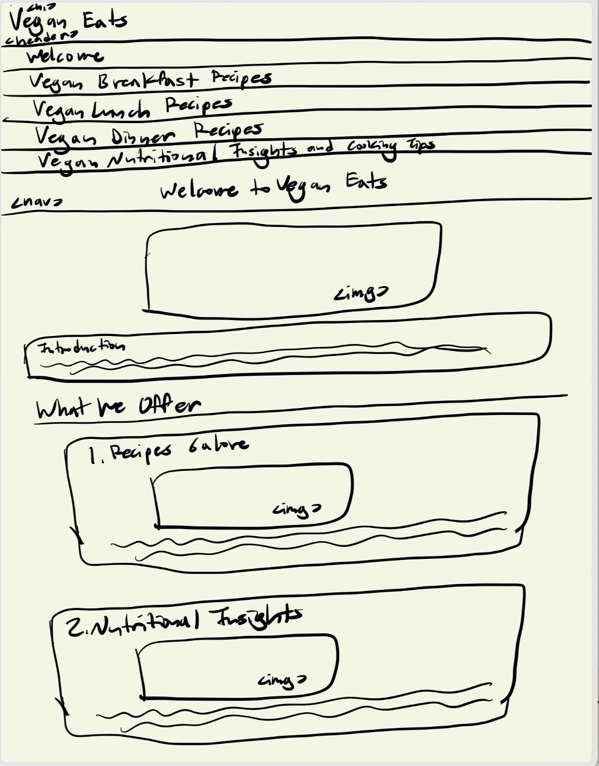 <h1>
Vegan Eats
<header>
Welcome
Vegan Breakfast Recipes
Vegan Lunch Recipes
Vegan Dinner Recipes
Vegan Nutritional Insights and Cooking Tips
Welcome to Vegan Eats
<nav>
<img>
Introduction
What We Offer
1. Recipes Galore
<img>
2. Nutritional Insights
<img>